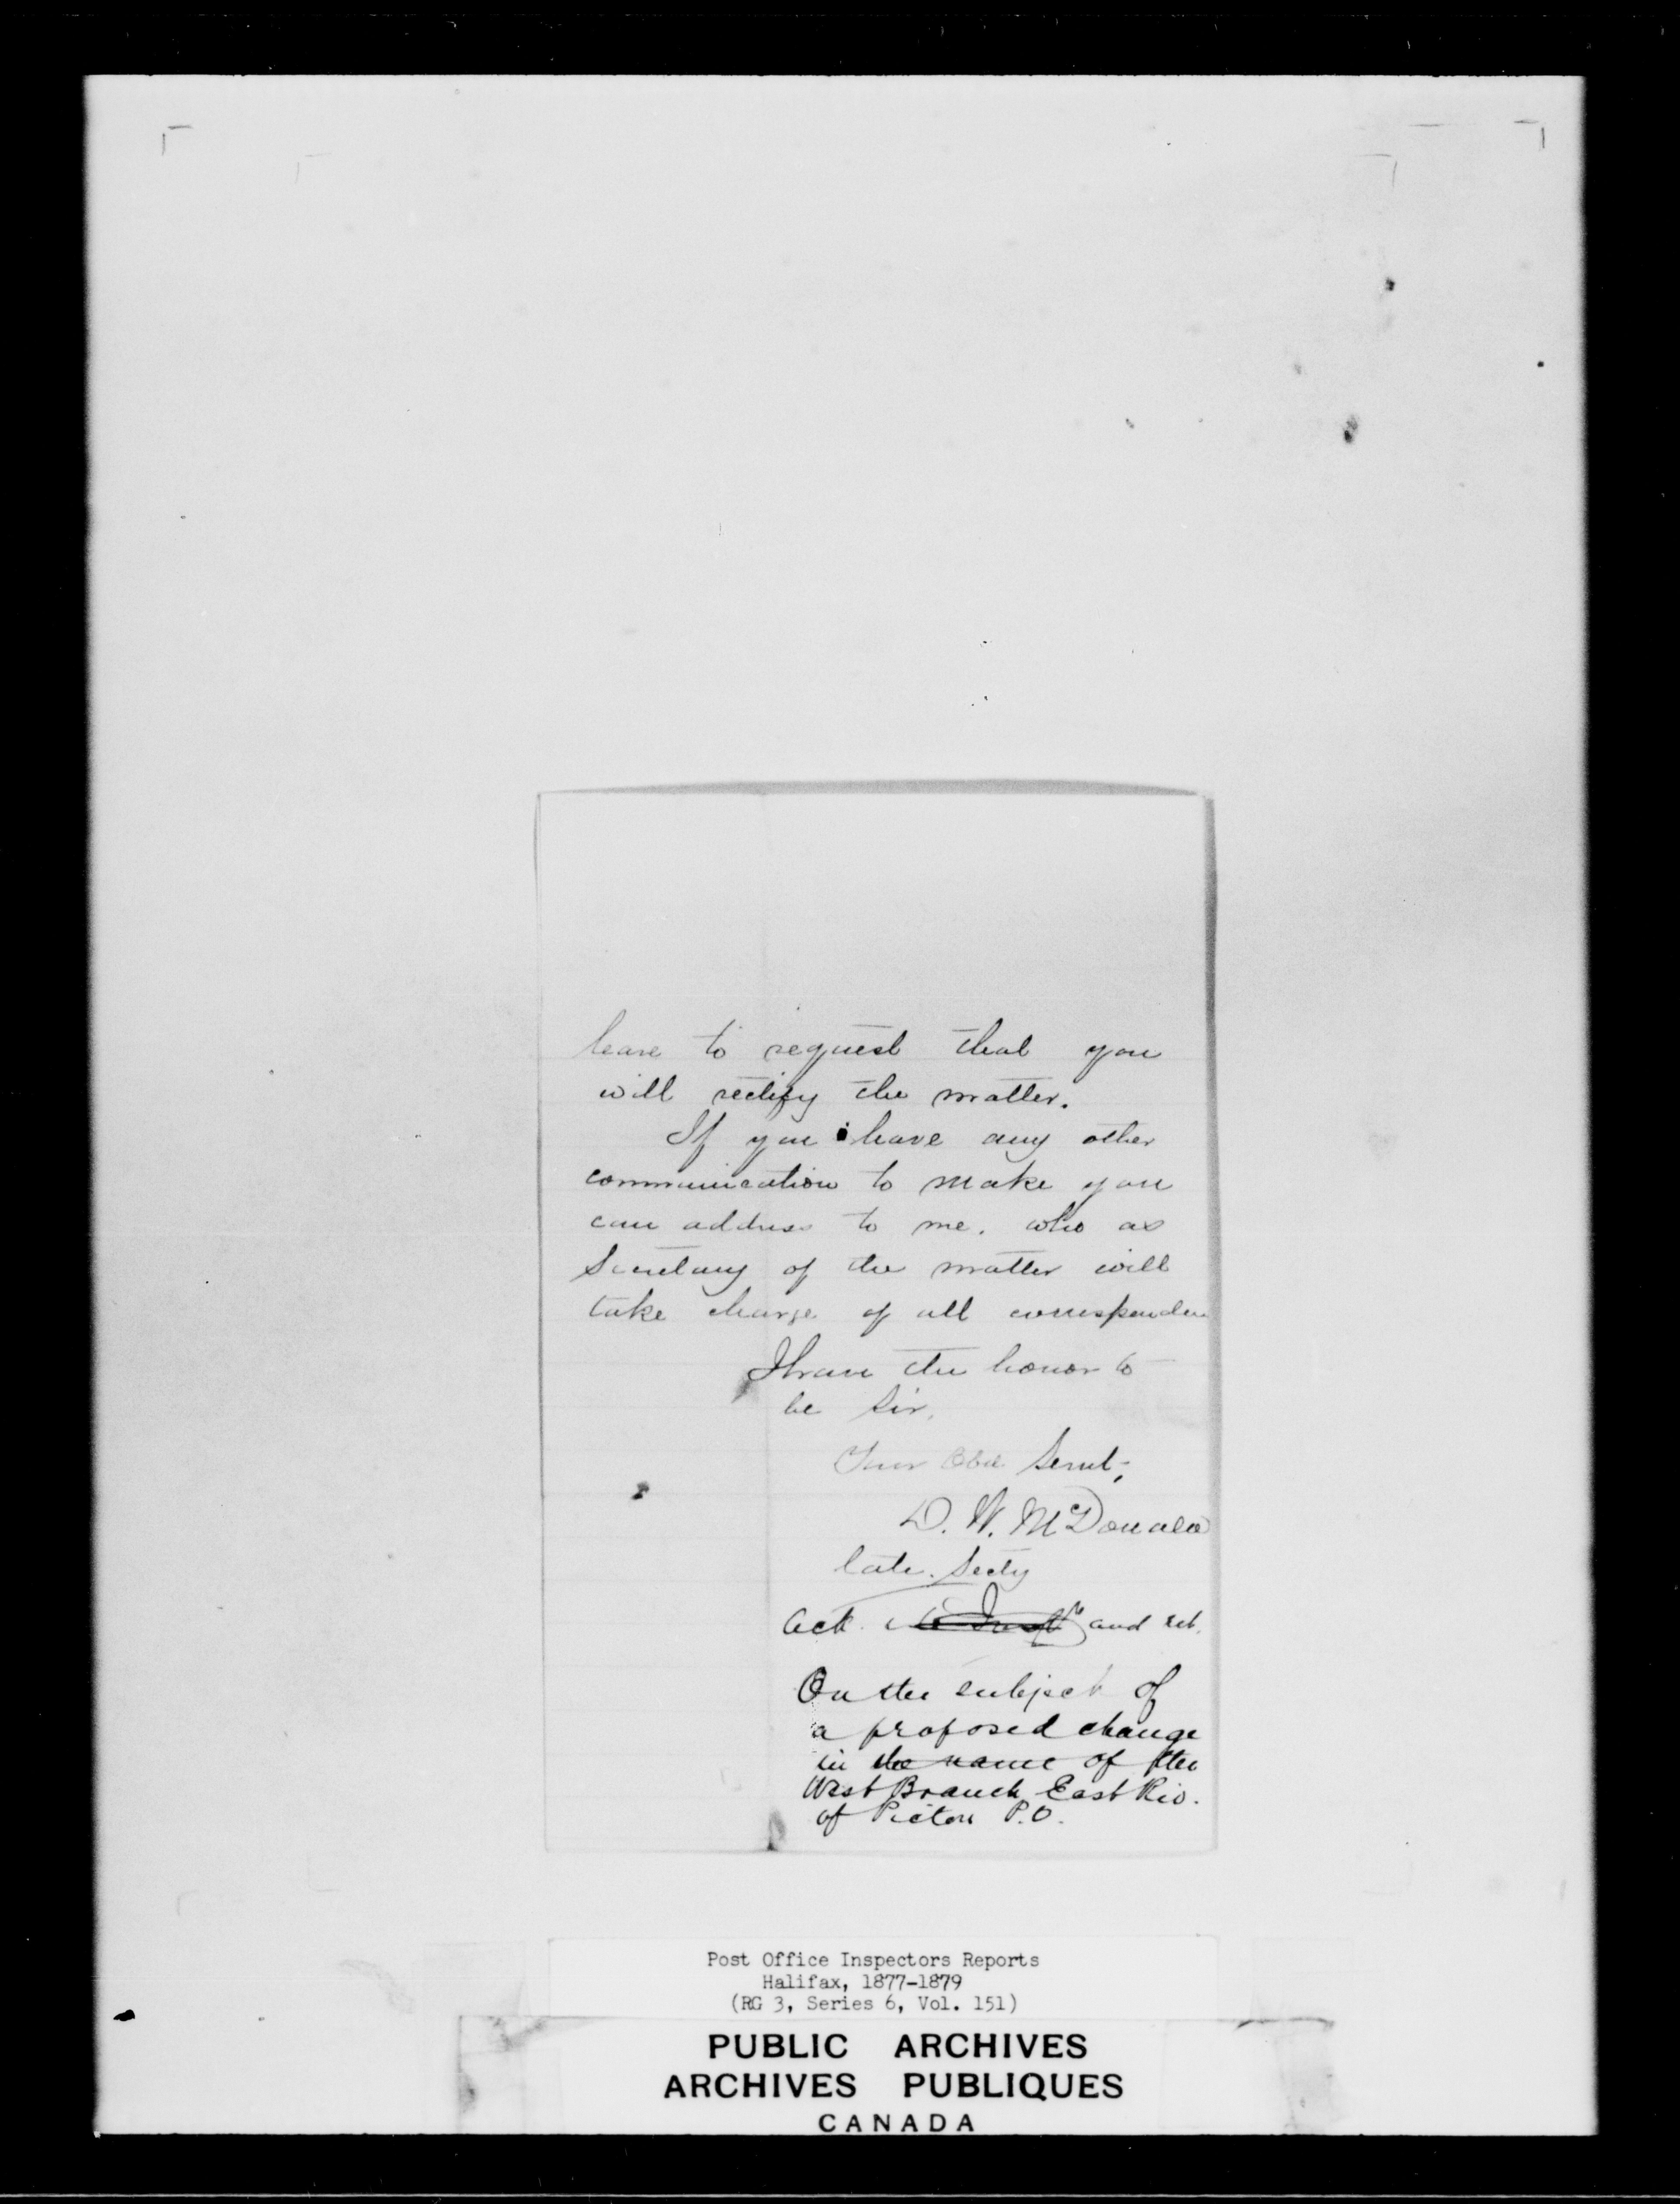 leave to request that you
will rectify the matter.
If you have any other
communication to make you
can address to me. who as
Secretary of the matter will
take charge of all corresponden
I have the honor to
be Sir,
Your Obd Servt,
D. W. McDonald
late. Secty
Ack. and ret.
On the subject of
a proposed change
in the name of the
West Branch East Riv.
of Pictou P.O.
Post Office Inspectors Reports
Halifax, 1877-1879
(RG 3, Series 6, Vol. 151)
PUBLIC ARCHIVES
ARCHIVES PUBLIQUES
CANADA